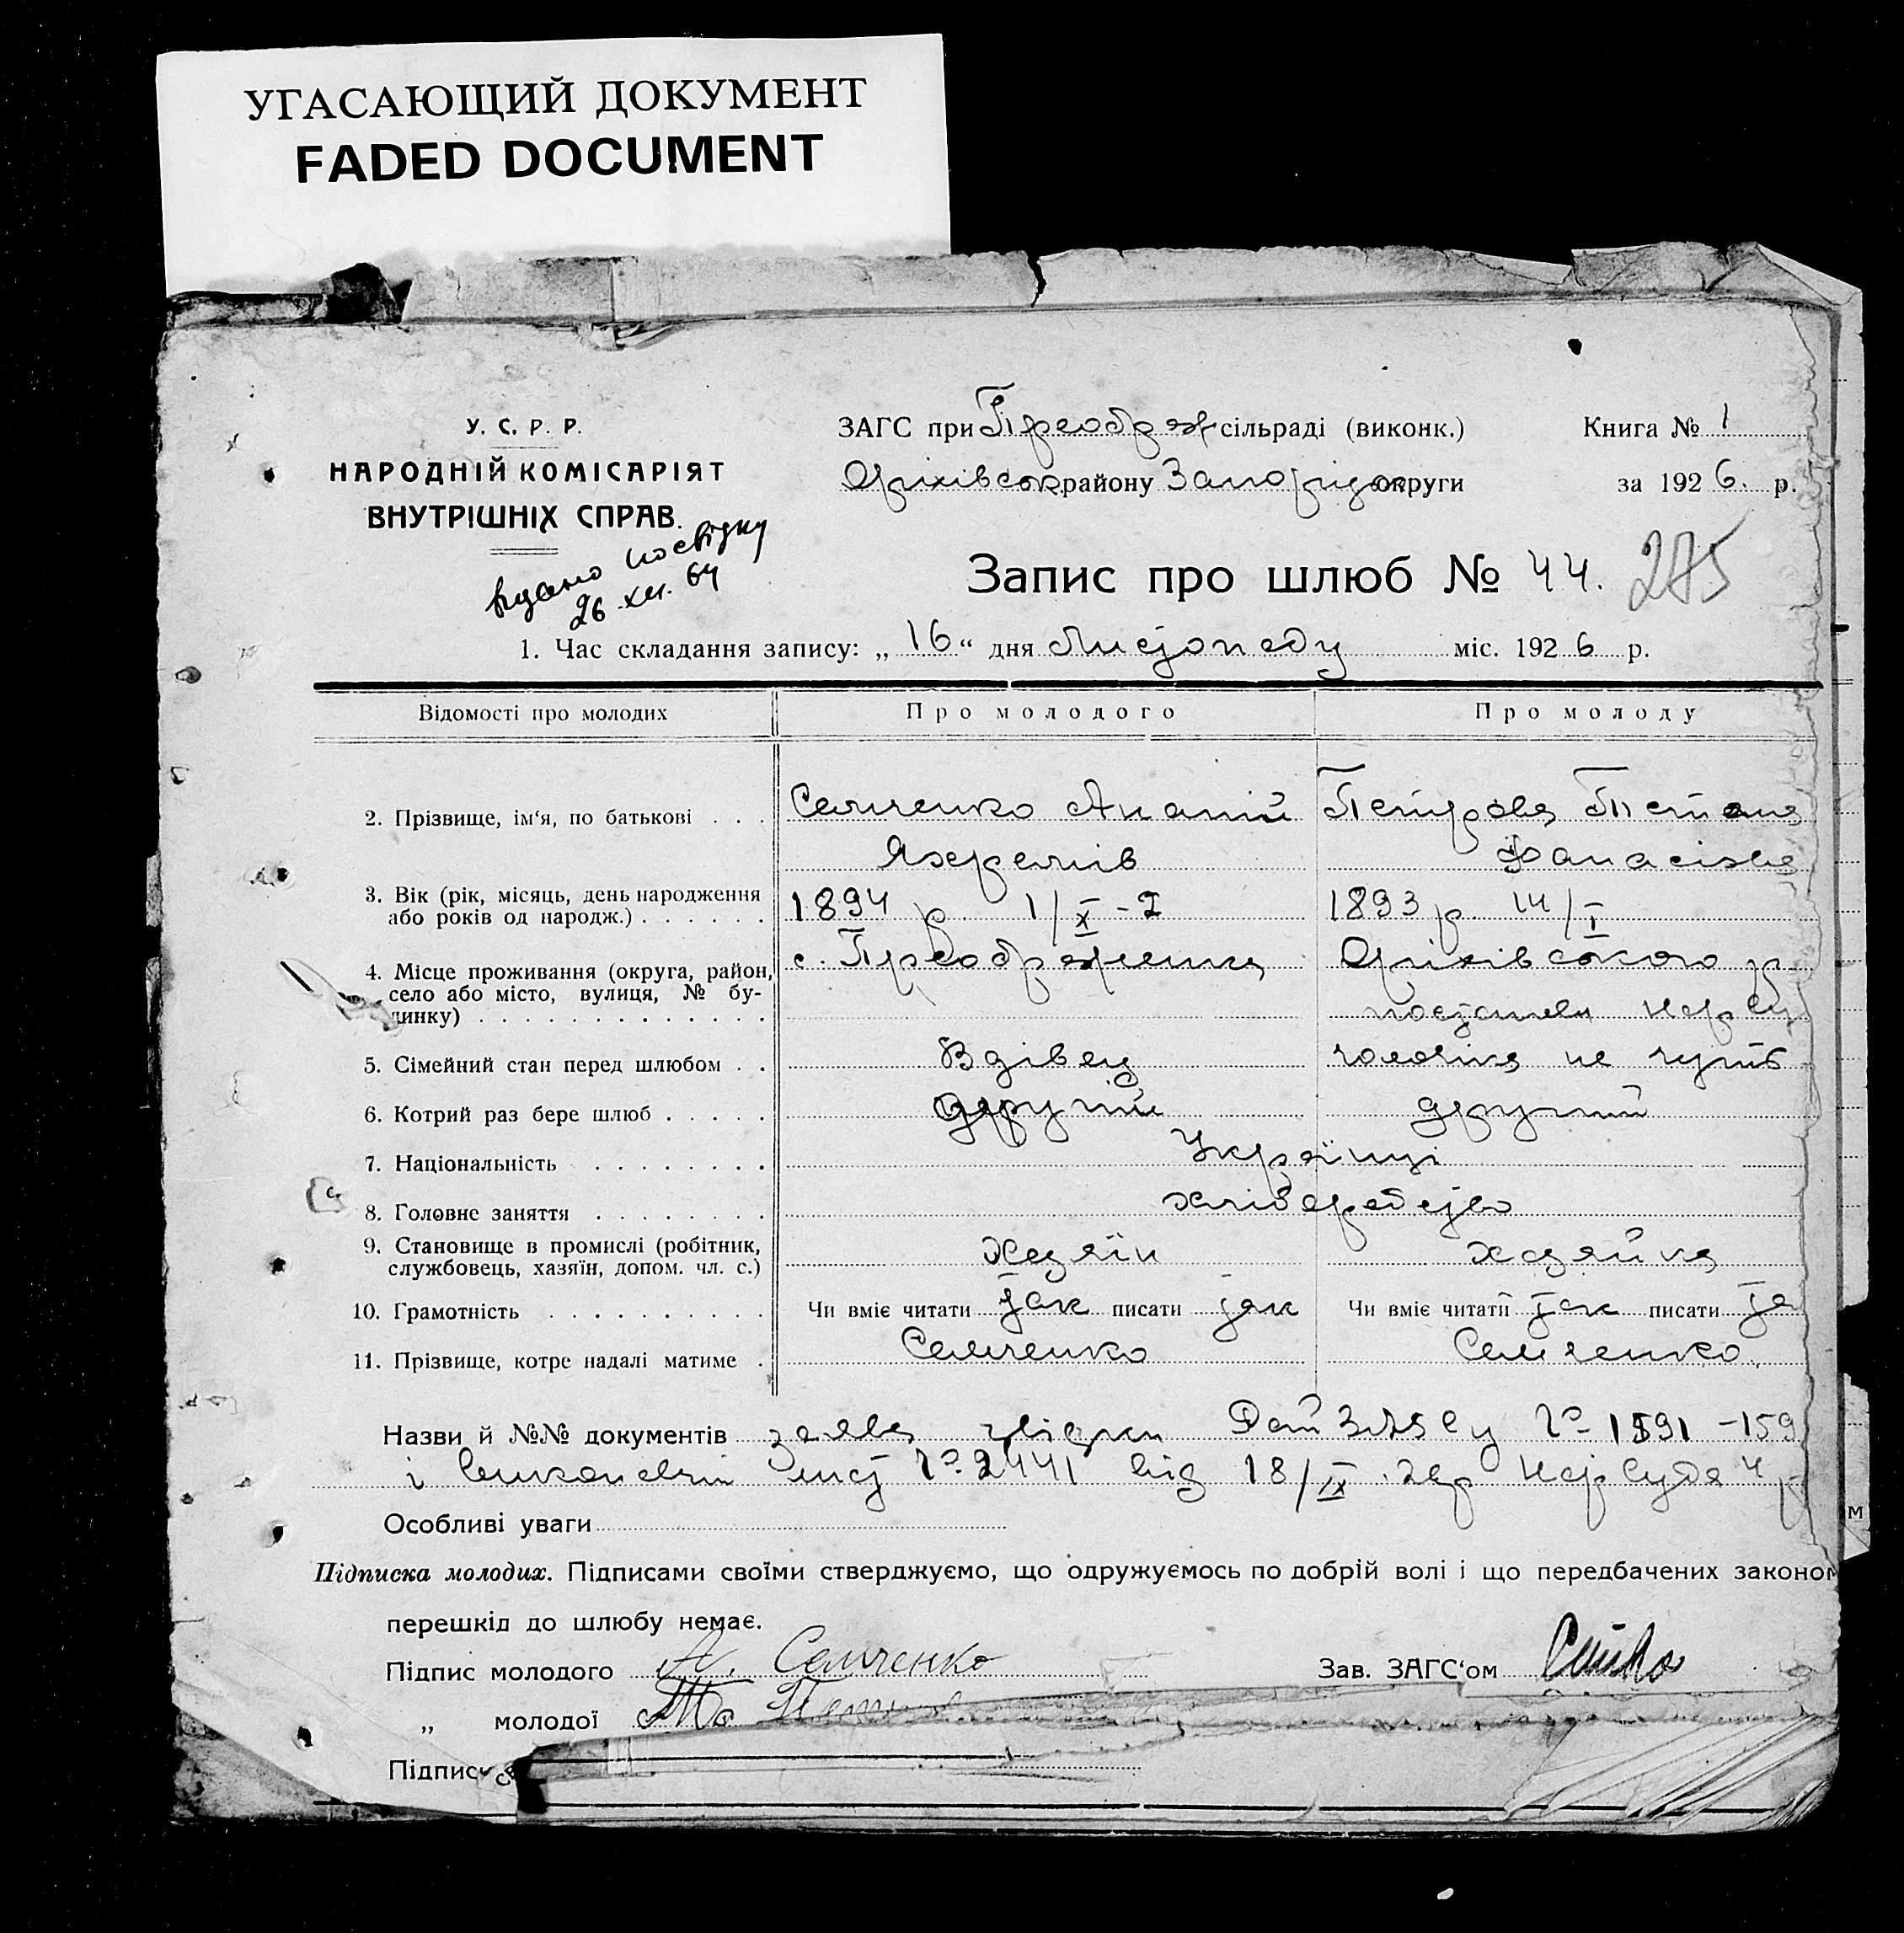 УГАСАЮЩИЙ ДОКУМЕНТ
FADED DOCUMENT
У. С. Р. Р.
НАРОДНІЙ КОМІСАРІЯТ
ВНУТРІШНІХ СПРАВ.
видано посвідку
26.XII.64
ЗАГС при Преображ сільраді (виконк.)
Оріхівськ району Запоріжж округи
Книга № 1
за 1926. р.
Запис про шлюб № 44.
285
1. Час складання запису: „16“ дня Листопаду міс. 1926 р.
Відомості про молодих Про молодого Про молоду
2. Прізвище, ім‘я, по батькові . . . Семченко Ананій Петрова Тетяна
Яхремів Фанасівна
3. Вік (рік, місяць, день народження
або років од народж.) . . . . . . 1894 р. 1/X 1893 р. 14/I
4. Місце проживання (округа, район,
село або місто, вулиця, № бу-
динку) . . . . . . . . . . . . . с. Преображенка Оріхівського р.
постанови Нарсу
5. Сімейний стан перед шлюбом . . Вдівец чоловіка не чути
6. Котрий раз бере шлюб . . . . . другий другий
7. Національність . . . . . . . . Українці
8. Головне заняття . . . . . . . . хліборобство
9. Становище в промислі (робітник,
службовець, хазяїн, допом. чл. с.) Хазяїн хазяйка
10. Грамотність . . . . . . . . . . Чи вміє читати так писати так Чи вміє читати так писати та
11. Прізвище, котре надалі матиме . Семченко Семченко.
Назви й №№ документів заява Рай ЗАГСу № 1591 - 159
і виконавчий лист № 2441 від 18/IX Нарсуда 4 р
Особливі уваги
Підписка молодих. Підписами своїми стверджуємо, що одружуємось по добрій волі і що передбачених законом
перешкід до шлюбу немає.
Підпис молодого А. Семченко
Зав. ЗАГС‘ом
„ молодої
Підпис